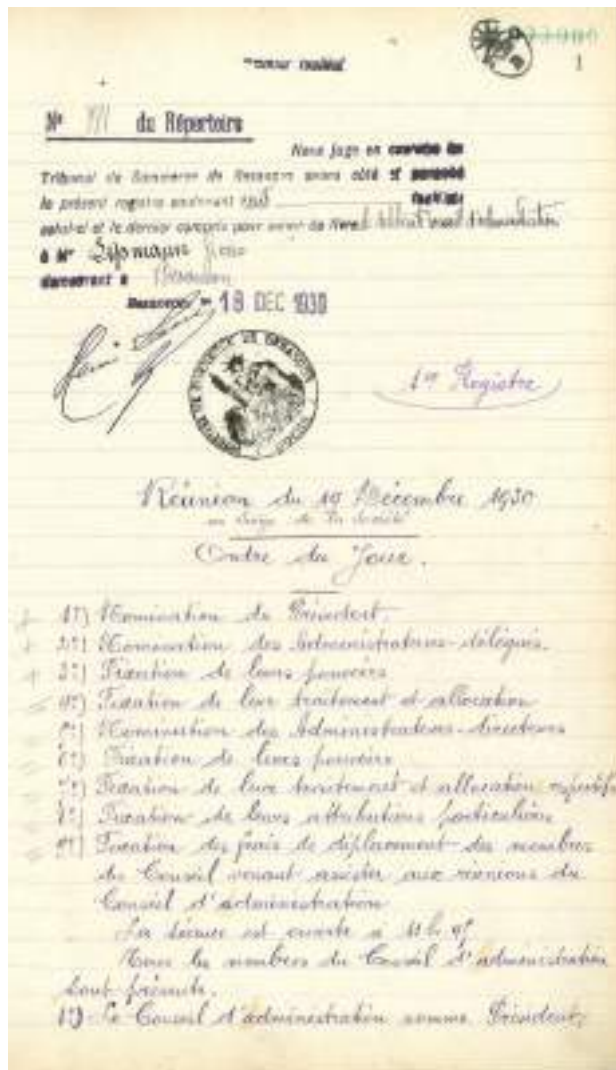 1
N° du Répertoire
Nous Juge en
Tribunal de Commerce de Besançon avons coté et
le présent registre contenant
et le dernier compris pour servir de
à Mr Lipmann
demeurant à Besançon
Besançon le 18 DEC 1930
1er Registre
Réunion du 19 Décembre 1930
au Siège de la Société
Ordre du Jour.
1°) Nomination du Président.
2°) Nomination des Administrateurs-délégués.
3°) Fixation de leurs pouvoirs
4°) Fixation de leur traitement et allocation
5°) Nomination des Administrateurs-directeurs
6°) Fixation de leurs pouvoirs
7°) Fixation de leur traitement et allocation respectifs
8°) Fixation de leurs attributions particulières
9°) Fixation des frais de déplacement des membres
du Conseil venant assister aux réunions du
Conseil d'administration
La séance est ouverte à 11 h
Tous les membres du Conseil d'administration
sont présents.
1°) Le Conseil d'administration nomme Président,